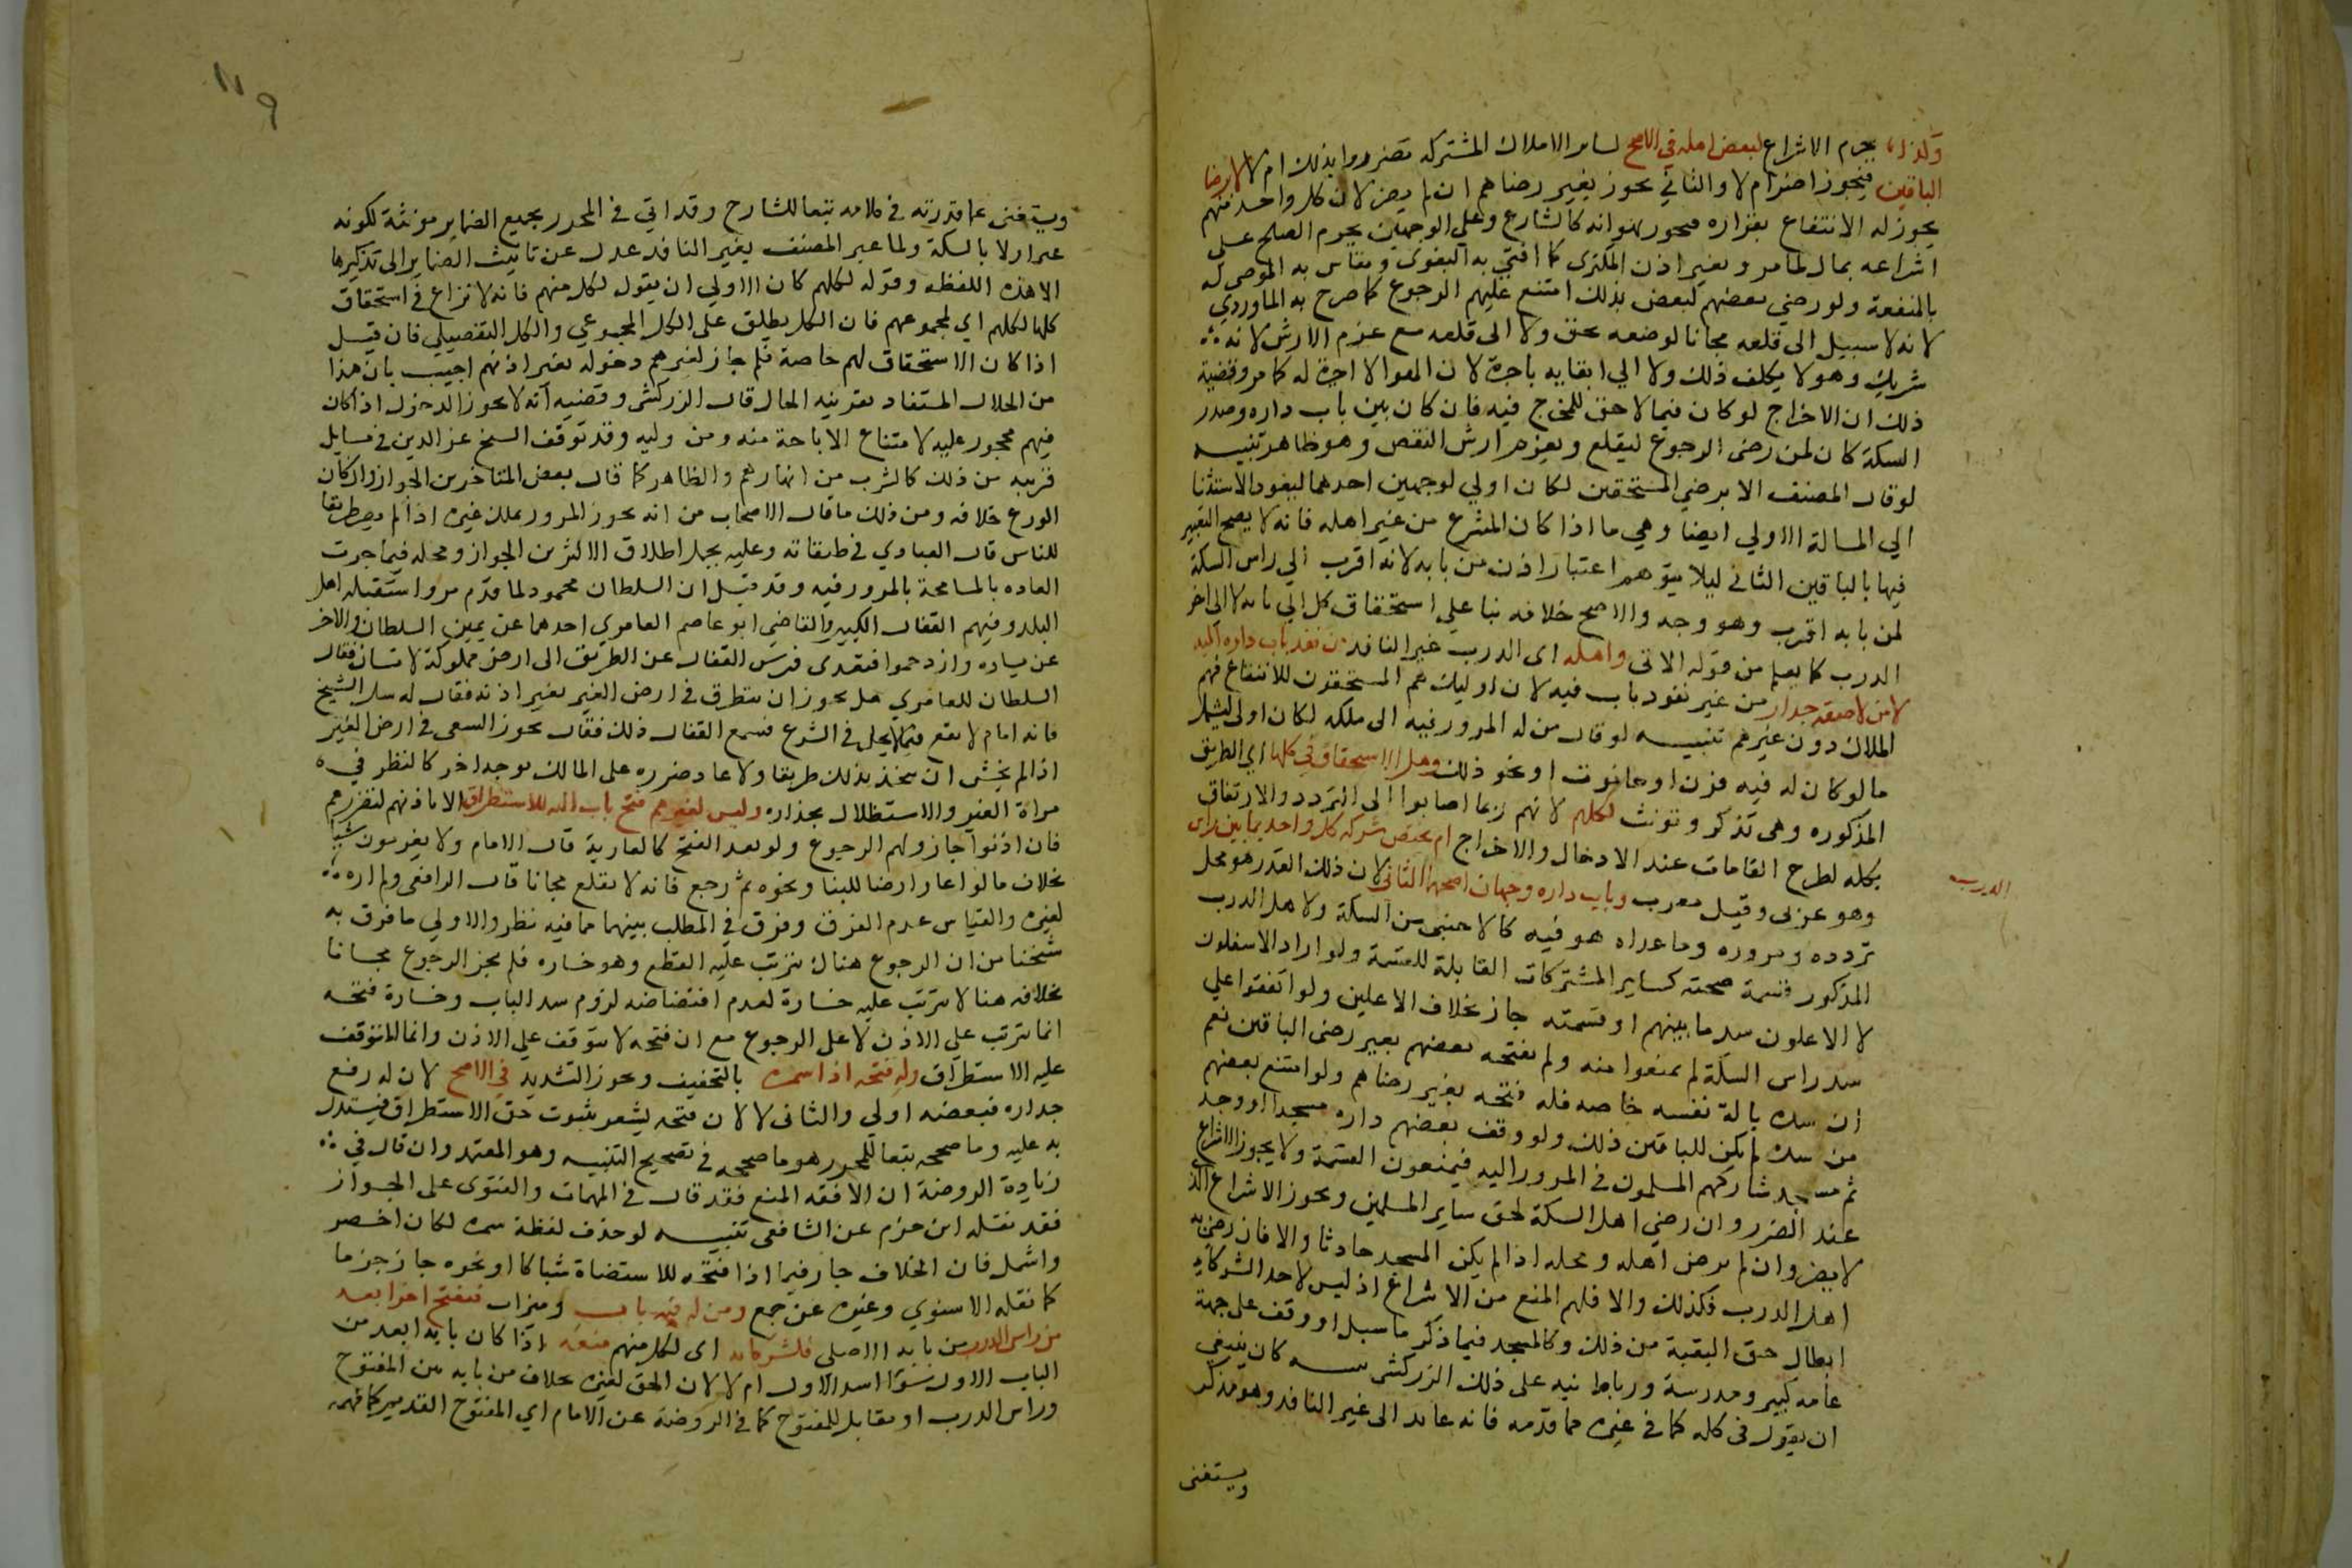 وكذا يحرم الاشراع لبعض اهله في الاصح لساير الاملاك المشتركه تضرروا بذلك ام لا الا برضا
الباقين فيجوز اضرام لا والثاني يجوز بغير رضاهم ان لم يضر لان كل واحد منهم
يجوز له الانتفاع بقراره فيجوز بهوائه كالشارع وعلى الوجهين يحرم الصلح على
اشراعه بمال لما مر ويعتبر اذن المكتري كما افتى به البغوى ويقاس به الموصى له
بالمنفعة ولو رضي بعضهم لبعض بذلك امتنع عليهم الرجوع كما صرح به الماوردي
لانه لا سبيل الى قلعه مجانا لوضعه بحق ولا الى قلعه مع غرم الارش لانه
شريك وهو لا يكلف ذلك ولا الي ابقايه باجرة لان الهوا لا اجرة له كما مر وقضية
ذلك ان الاخراج لو كان فيما لا حق للمخرج فيه فان كان بين باب داره وصدر
السكة كان لمن رضى الرجوع ليقلع ويغرم ارش النقص وهو ظاهر تنبيه
لو قال المصنف الا برضي المستحقين لكان اولي لوجهين احدهما ليعود الاستثنا
الي المسالة الاولي ايضا وهي ما اذا كان المشرع من غير اهله فانه لا يصح التعبير
فيها بالباقين الثاني ليلا يتوهم اعتبار اذن من بابه لانه اقرب الي راس السكة
لمن بابه اقرب وهو وجه والاصح خلافه بنا علي استحقاق كل الي بابه لا الي اخر
الدرب كما يعلم من قوله الاتى واهله اى الدرب غير النافذ من نفذ باب داره اليه
لا من لاصقه جدار من غير نفوذ باب فيه لان اوليك هم المستحقون للانتفاع فهم
الملاك دون غيرهم تنبيه لو قال من له المرور فيه الى ملكه لكان اولى ليشمل
ما لو كان له فيه فرن او حانوت او نحو ذلك وهل الاستحقاق في كلها اي الطريق
المذكوره وهى تذكر وتونث لكلهم لانهم ربما احتاجوا الى التردد والارتفاق
بكله لطرح القامات عند الادخال والاخراج ام يختص شركة كل واحد بما بين راس
الدرب
وهو عربى وقيل معرب وباب داره وجهان اصحهما الثانى لان ذلك القدر هو محل
تردده ومروره وما عداه هو فيه كالاجنبى من السكة ولاهل الدرب
المذكور قسمة صحنه كساير المشتركات القابلة للقسمة ولو اراد الاسفلون
لا الاعلون سد ما بينهم او قسمته جاز بخلاف الاعلين ولو اتفقوا علي
سد راس السكة لم يمنعوا منه ولم يفتحه بعضهم بغير رضى الباقين نعم
ان سده بالة نفسه خاصه فله فتحه بغير رضاهم ولو امتنع بعضهم
من سده لم يكن للباقين ذلك ولو وقف بعضهم داره مسجدا او وجد
ثم مسجد شاركهم المسلمون في المرور اليه فيمنعون القسمة ولا يجوز الاشراع
عند الضرر وان رضي اهل السكة لحق ساير المسلمين ويجوز الاشراع الذ
لا يضر وان لم يرض اهله ومحله اذا لم يكن المسجد حادثا والا فان رضي به
اهل الدرب فكذلك والا فلهم المنع من الاشراع اذ ليس لاحد الشركاء
ابطال حق البقية من ذلك وكالمسجد فيما ذكر ما سبل او وقف على جهة
عامه كبير ومدرسة ورباط نبه على ذلك الزركشى كان ينبغي
ان يقول فى كله كما في غيره مما قدمه فانه عايد الى غير النافد وهو مذكر
ويستغنى
١١٩
ويستغنى عما قدرته في كلامه تبعا للشارح وقد اتي في المحرر بجميع الضماير مونثة لكونه
عبر اولا بالسكة ولما عبر المصنف بغير النافد عدل عن تانيث الضماير الى تذكيرها
الا هذه اللفظه وقوله لكلهم كان الاولي ان يقول لكل منهم فانه لا نزاع في استحقاق
كلها لكلهم اي لمجموعهم فان الكل يطلق على الكل المجموعي والكل التفصيلي فان قيل
اذا كان الاستحقاق لهم خاصة فلم جاز لغيرهم دخوله بغير اذنهم اجيب بان هذا
من الحلال المستفاد بقرينه الحال قال الزركشى وقضيته انه لا يجوز الدخول اذا كان
فيهم محجور عليه لامتناع الاباحة منه ومن وليه وقد توقف الشيخ عز الدين في مسايل
قريبه من ذلك كالشرب من انهارهم والظاهر كما قال بعض المتاخرين الجواز وان كان
الورع خلافه ومن ذلك ما قال الاصحاب من انه يجوز المرور بملك غيره اذا لم يصر طريقا
للناس قال العبادي في طبقاته وعليه يحمل اطلاق الاكثرين الجواز ومحله فيما جرت
العاده بالمسامحة بالمرور فيه وقد قيل ان السلطان محمود لما قدم مرو استقبله اهل
البلد وفيهم القفال الكبير والقاضي ابو عاصم العامري احدهما عن يمين السلطان والاخر
عن يساره وازدحموا فتعدى فرس القفال عن الطريق الى ارض مملوكة لانسان فقال
السلطان للعامري هل يجوز ان يتطرق في ارض الغير بغير اذنه فقال له سل الشيخ
فانه امام لا يقع فيما لا يحل في الشرع فسمع القفال ذلك فقال يجوز السعى في ارض الغير
اذا لم يخش ان يتخذ بذلك طريقا ولا عاد ضرره على المالك بوجه اخر كالنظر في
مراة الغير والاستظلال بجداره وليس لغيرهم فتح باب اليه للاستطراق الا باذنهم لتضررهم
فان اذنوا جاز ولهم الرجوع ولو بعد الفتح كالعارية قال الامام ولا يغرمون شيا
بخلاف ما لو اعار ارضا للبنا ونحوه ثم رجع فانه لا يقلع مجانا قال الرافعى ولم اره
لغيره والقياس عدم الفرق وفرق في المطلب بينهما بما فيه نظر والاولي ما فرق به
شيخنا من ان الرجوع هناك يترتب عليه القطع وهو خساره فلم يجز الرجوع مجانا
بخلافه هنا لا يترتب عليه خسارة لعدم اقتضاضه لزوم سد الباب وخسارة فتحه
انما يترتب علي الاذن لا على الرجوع مع ان فتحه لا يتوقف علي الاذن وانما المتوقف
عليه الاستطراق وله فتحه اذا سمره بالتخفيف ويجوز التشديد في الاصح لان له رفع
جداره فبعضه اولي والثانى لا لان فتحه يشعر بثبوت حق الاستطراق فيستدل
به عليه وما صححه تبعا للمحرر هو ما صححه في تصحيح التنبيه وهو المعتمد وان قال في
زيادة الروضة ان الافقه المنع فقد قال في المهمات والفتوى على الجواز
فقد نقله ابن حزم عن الشافعى تنبيه لو حذف لفظة سمره لكان اخصر
واشمل فان الخلاف جار فيما اذا فتحه للاستضاة شباكا او نحوه جاز جزما
كما نقله الاسنوي وغيره عن جمع ومن له فيه باب وميزاب ففتح اخر ابعد
من راس الدرب من بابه الاصلي فلشركايه اى لكل منهم منعه اذا كان بابه ابعد من
الباب الاول سوا اسد الاول ام لا لان الحق لغيره بخلاف من بابه بين المفتوح
وراس الدرب او مقابل للمفتوح كما في الروضة عن الامام اي المفتوح القديم كما فهمه